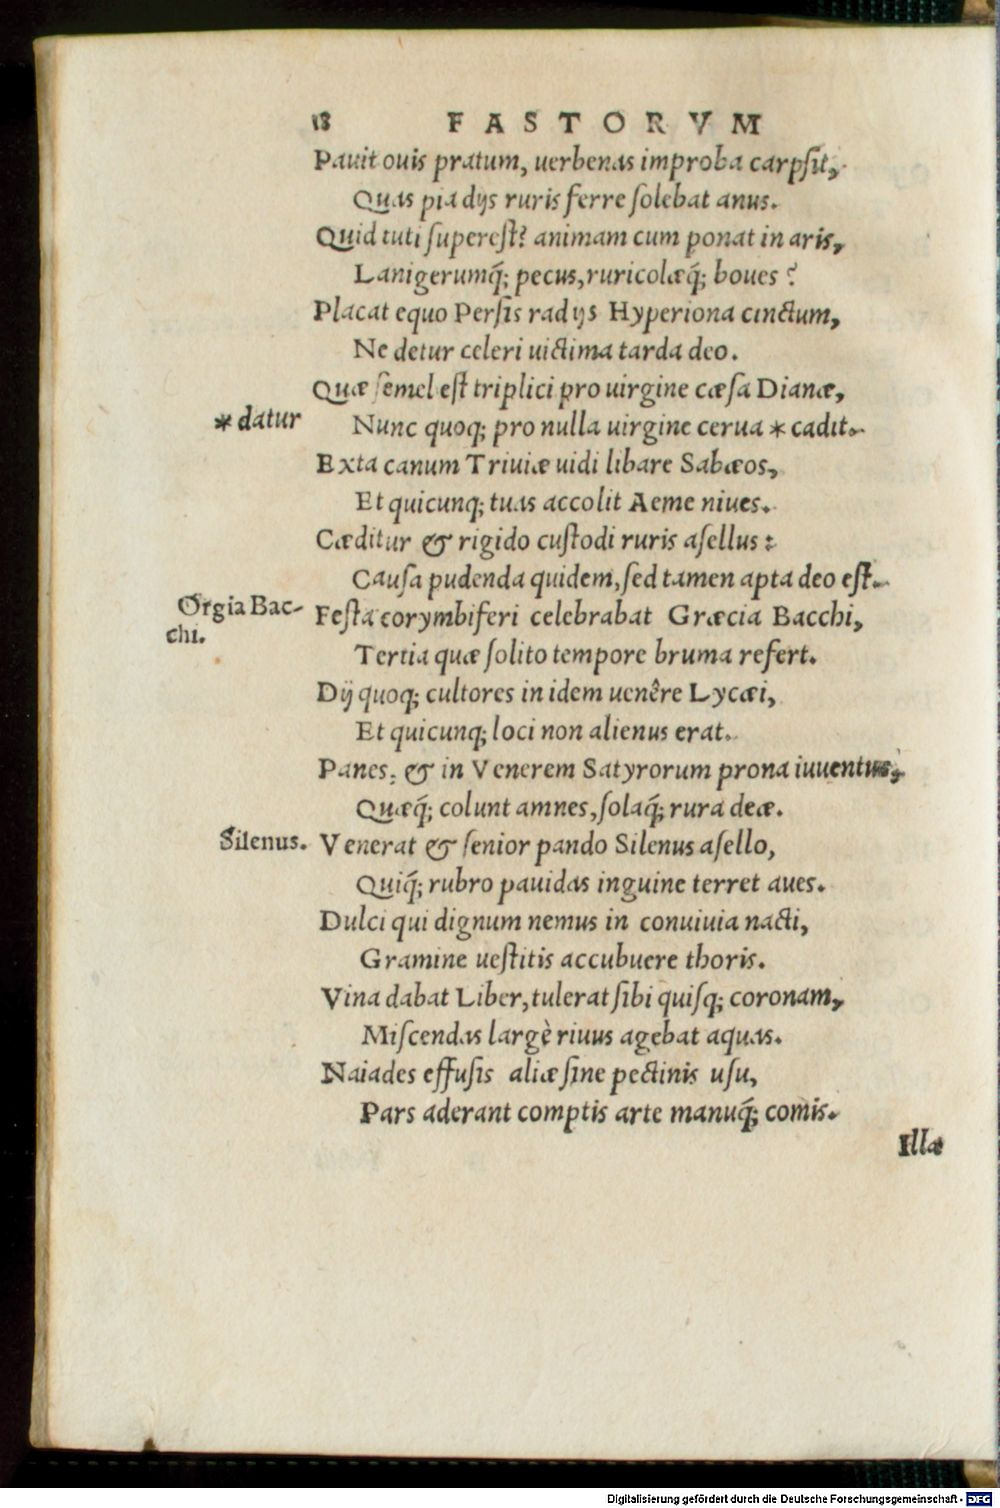 18 FASTORVM
Pauit ouis pratum, uerbenas improba carpsit,
Quas pia dijs ruris ferre solebat anus.
Quid tuti superest? animam cum ponat in aris,
Lanigerumq́; pecus, ruricolæq́; boues?
Placat equo Persis radijs Hyperiona cinctum,
Ne detur celeri uictima tarda deo.
Quæ semel est triplici pro uirgine cæsa Dianæ,
* datur
Nunc quoq; pro nulla uirgine cerua * cadit.
Exta canum Triuiæ uidi libare Sabæos,
Et quicunq; tuas accolit Aeme niues.
Cæditur & rigido custodi ruris asellus:
Causa pudenda quidem, sed tamen apta deo est.
Orgia Bac-
chi.
Festa corymbiferi celebrabat Græcia Bacchi,
Tertia quæ solito tempore bruma refert.
Dij quoq; cultores in idem uenêre Lycæi,
Et quicunq; loci non alienus erat.
Panes, & in Venerem Satyrorum prona iuuentus,
Quæq́; colunt amnes, solaq́; rura deæ.
Silenus.
Venerat & senior pando Silenus asello,
Quiq́; rubro pauidas inguine terret aues.
Dulci qui dignum nemus in conuiuia nacti,
Gramine uestitis accubuere thoris.
Vina dabat Liber, tulerat sibi quisq; coronam,
Miscendas largè riuus agebat aquas.
Naiades effusis aliæ sine pectinis usu,
Pars aderant comptis arte manuq́; comis.
Illæ
Digitalisierung gefördert durch die Deutsche Forschungsgemeinschaft - DFG